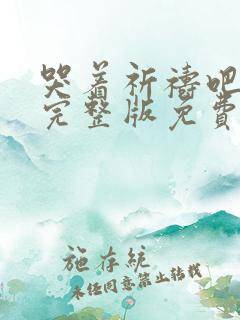 哭着祈祷吧
完整版免费
施存统
未经同意禁止转载